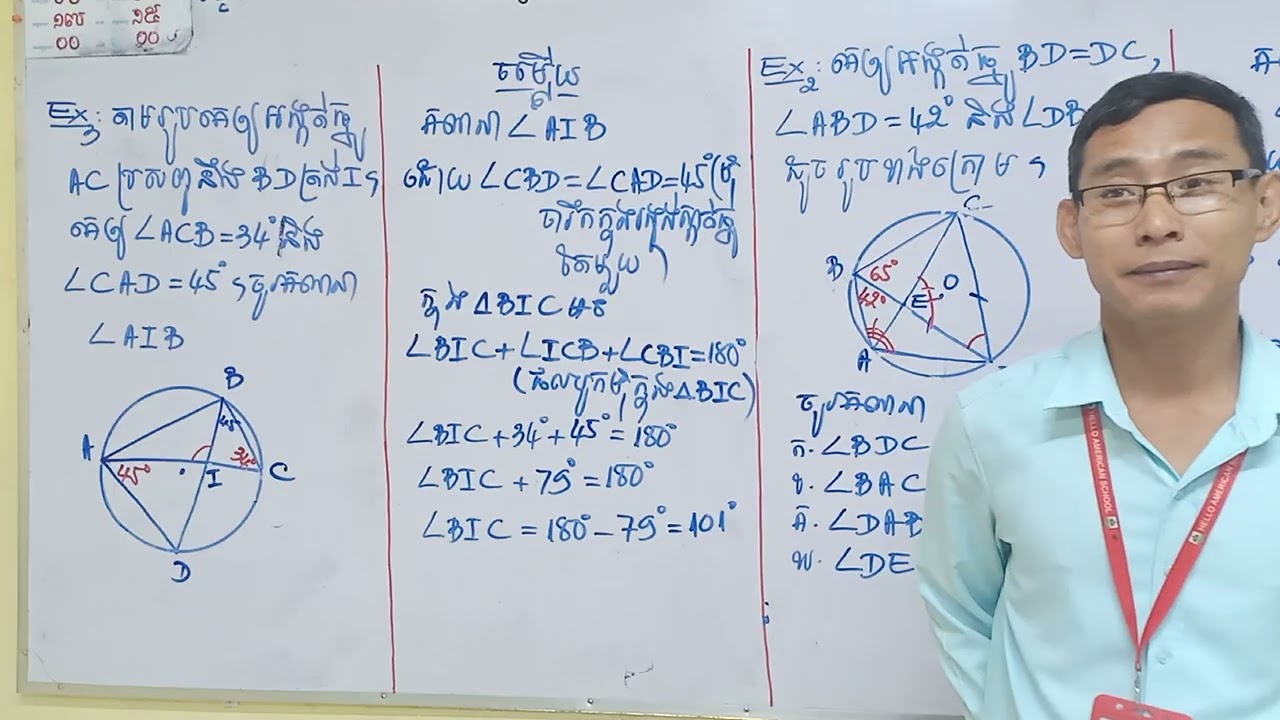 ១៤ ១៥
00 00
Ex3: តាមរូបគេឲ្យអង្កត់ធ្នូ
AC ប្រសព្វនឹង BD ត្រង់ I ។
គេឲ្យ ∠ACB = 34° និង
∠CAD = 45° ។ ចូរគណនា
∠AIB
B
45°
A
45°
34°
I
C
D
ចម្លើយ
គណនា ∠AIB
ដោយ ∠CBD = ∠CAD = 45° (មុំ
ចារឹកក្នុងរង្វង់ស្កាត់ធ្នូ
តែមួយ)
ក្នុង ΔBIC មាន
∠BIC + ∠ICB + ∠CBI = 180°
(ផលបូកមុំក្នុង ΔBIC)
∠BIC + 34° + 45° = 180°
∠BIC + 79° = 180°
∠BIC = 180° – 79° = 101°
Ex2: គេឲ្យអង្កត់ធ្នូ BD = DC,
∠ABD = 42° និង ∠DB
ដូចរូបខាងក្រោម ។
C
B
65°
42°
E
O
A
ចូរគណនា
ក. ∠BDC
ខ. ∠BAC
គ. ∠DAB
ឃ. ∠DE
HELLO AMERICAN SCHOOL
HELLO AMERICAN